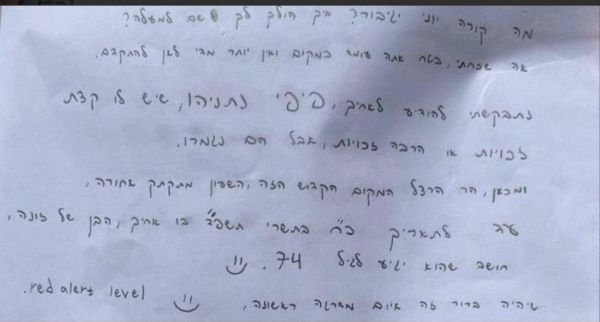 מה קורה יוני יגיבור? איך הולך לך שם למעלה?
אה שכחתי, בטח אתה עומד במקום ואין יותר מדי לאן להתקדם.
נתבקשתי להודיע לאחיך, פיפי נתניהו, שיש לו קצת
זכויות או הרבה זכויות, אבל הם נגמרו.
ומכאן, הר הרצל המקום הקדוש הזה, השעון מתקתק אחורה,
עד לתאריך כ"ח בתשרי תשפ"ד בו אחיך, הבן של זונה,
חושב שהוא יגיע לגיל 74. =)
שיהיה ברור זה איום מדרגה ראשונה, =) red alert level.